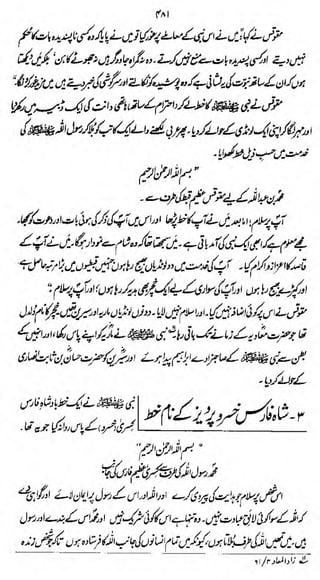 ۴۸۱
مقوقس نے کہا: میں نے اس نبی کے معاملے پر غور کیا تو میں نے پایا کہ وہ کسی ناپسندیدہ بات کا حکم
نہیں دیتے اور کسی پسندیدہ بات سے منع نہیں کرتے۔ وہ نہ گمراہ جادوگر ہیں نہ جھوٹے کاہن، بلکہ میں دیکھتا
ہوں کہ ان کے ساتھ نبوت کی یہ نشانی ہے کہ وہ پوشیدہ کو نکالتے اور سرگوشی کی خبر دیتے ہیں میں مزید غور کروں گا۔
مقوقس نے نبی ﷺ کا خط لے کر (احترام کے ساتھ) ہاتھی دانت کی ایک ڈبیہ میں رکھ دیا
اور مہر لگا کر اپنی ایک لونڈی کے حوالے کر دیا۔ پھر عربی لکھنے والے ایک کاتب کو بلا کر رسول اللہ ﷺ کی
خدمت میں حسب ذیل خط لکھوایا۔
"بسم اللہ الرحمٰن الرحیم
محمد بن عبد اللہ کے لیے مقوقس عظیم قبط کی طرف سے۔
آپ پر سلام، اما بعد! میں نے آپ کا خط پڑھا اور اس میں آپ کی ذکر کی ہوئی بات اور دعوت کو سمجھا۔
مجھے معلوم ہے کہ ابھی ایک نبی کی آمد باقی ہے۔ میں سمجھتا تھا کہ وہ شام سے نمودار ہو گا۔ میں نے آپ کے
قاصد کا اعزاز و اکرام کیا۔ آپ کی خدمت میں دو لونڈیاں بھیج رہا ہوں جنہیں قبطیوں میں بڑا مرتبہ حاصل ہے
اور کپڑے بھیج رہا ہوں، اور آپ کی سواری کے لیے ایک خچر بھی ہدیہ کر رہا ہوں، اور آپ پر سلام۔"
مقوقس نے اس پر کوئی اضافہ نہیں کیا۔ اور اسلام نہیں لایا۔ دونوں لونڈیاں ماریہ اور سیرین تھیں۔ خچر کا نام دلدل
تھا جو حضرت معاویہ کے زمانے تک باقی رہا۔ نبی ﷺ نے ماریہ کو اپنے پاس رکھا، اور انہیں کے
بطن سے نبی ﷺ کے صاحبزادے ابراہیم پیدا ہوئے اور سیرین کو حضرت حسان بن ثابت انصاری
کے حوالے کر دیا۔
۳۔ شاہ فارس خسرو پرویز کے نام خط
نبی ﷺ نے ایک خط بادشاہ فارس
کسریٰ (خسرو) کے پاس روانہ کیا جو یہ تھا۔
"بسم اللہ الرحمٰن الرحیم
محمد رسول اللہ کی طرف سے کسریٰ عظیم فارس کی جانب
اس شخص پر سلام جو ہدایت کی پیروی کرے اور اللہ اور اس کے رسول پر ایمان لائے اور گواہی دے
کہ اللہ کے سوا کوئی لائق عبادت نہیں۔ وہ تنہا ہے اس کا کوئی شریک نہیں اور محمد اس کے بندے اور رسول
ہیں۔ میں تمہیں اللہ کی طرف بلاتا ہوں، کیونکہ میں تمام انسانوں کی جانب اللہ کا فرستادہ ہوں تاکہ جو شخص زندہ
زاد المعاد ۳/۶۱